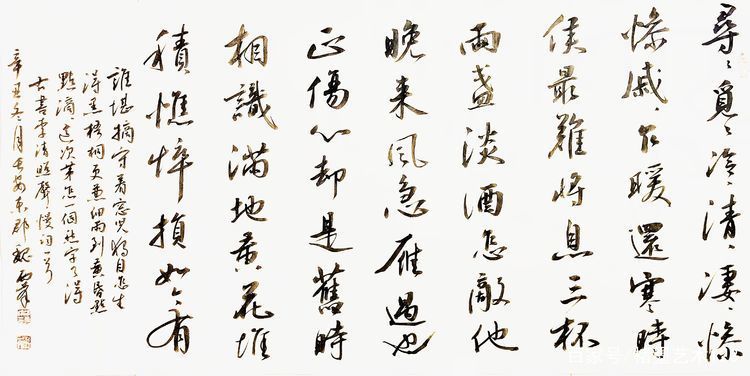 尋〻覓〻冷〻清〻淒〻慘
慘戚〻乍暖還寒時
候最難將息三杯
兩盞淡酒怎敵他
晚来風急雁過也
正傷心却是舊時
相識滿地黄花堆
積憔悴損如今有
誰堪摘守着窓児獨自怎生
得黑梧桐更兼細雨到黄昏點
點滴〻這次第怎一個愁字了得
右書李清照聲〻慢詞一首
辛丑冬月長安東郡魏
百家号/